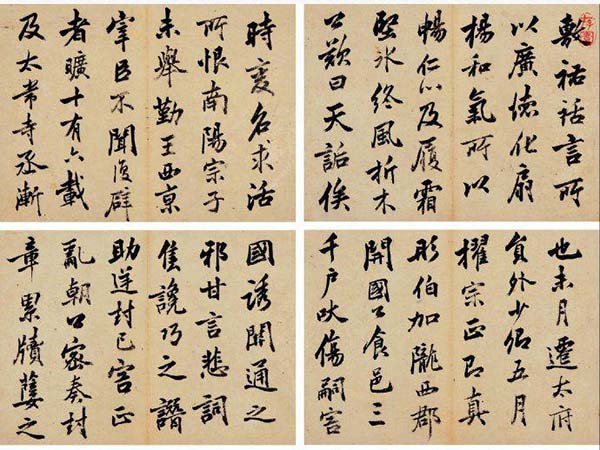 敷祐話言所
以廣德化扇
楊和氣所以
暢仁心及履霜
堅冰終風折木
公歎曰天詔俟
時變名求活
所恨南陽宗子
未舉勤王西京
宰臣不聞復辟
者曠十有六載
及太常寺丞漸
也未月遷太府
員外少卿五月
擢宗正即真
彤伯加隴西郡
開國公食邑三
千戶吠傷嗣害
國誘開通之
邪甘言悲詞
售讒巧之譖
助逆封已害正
亂朝公密奏封
章累牘萋之